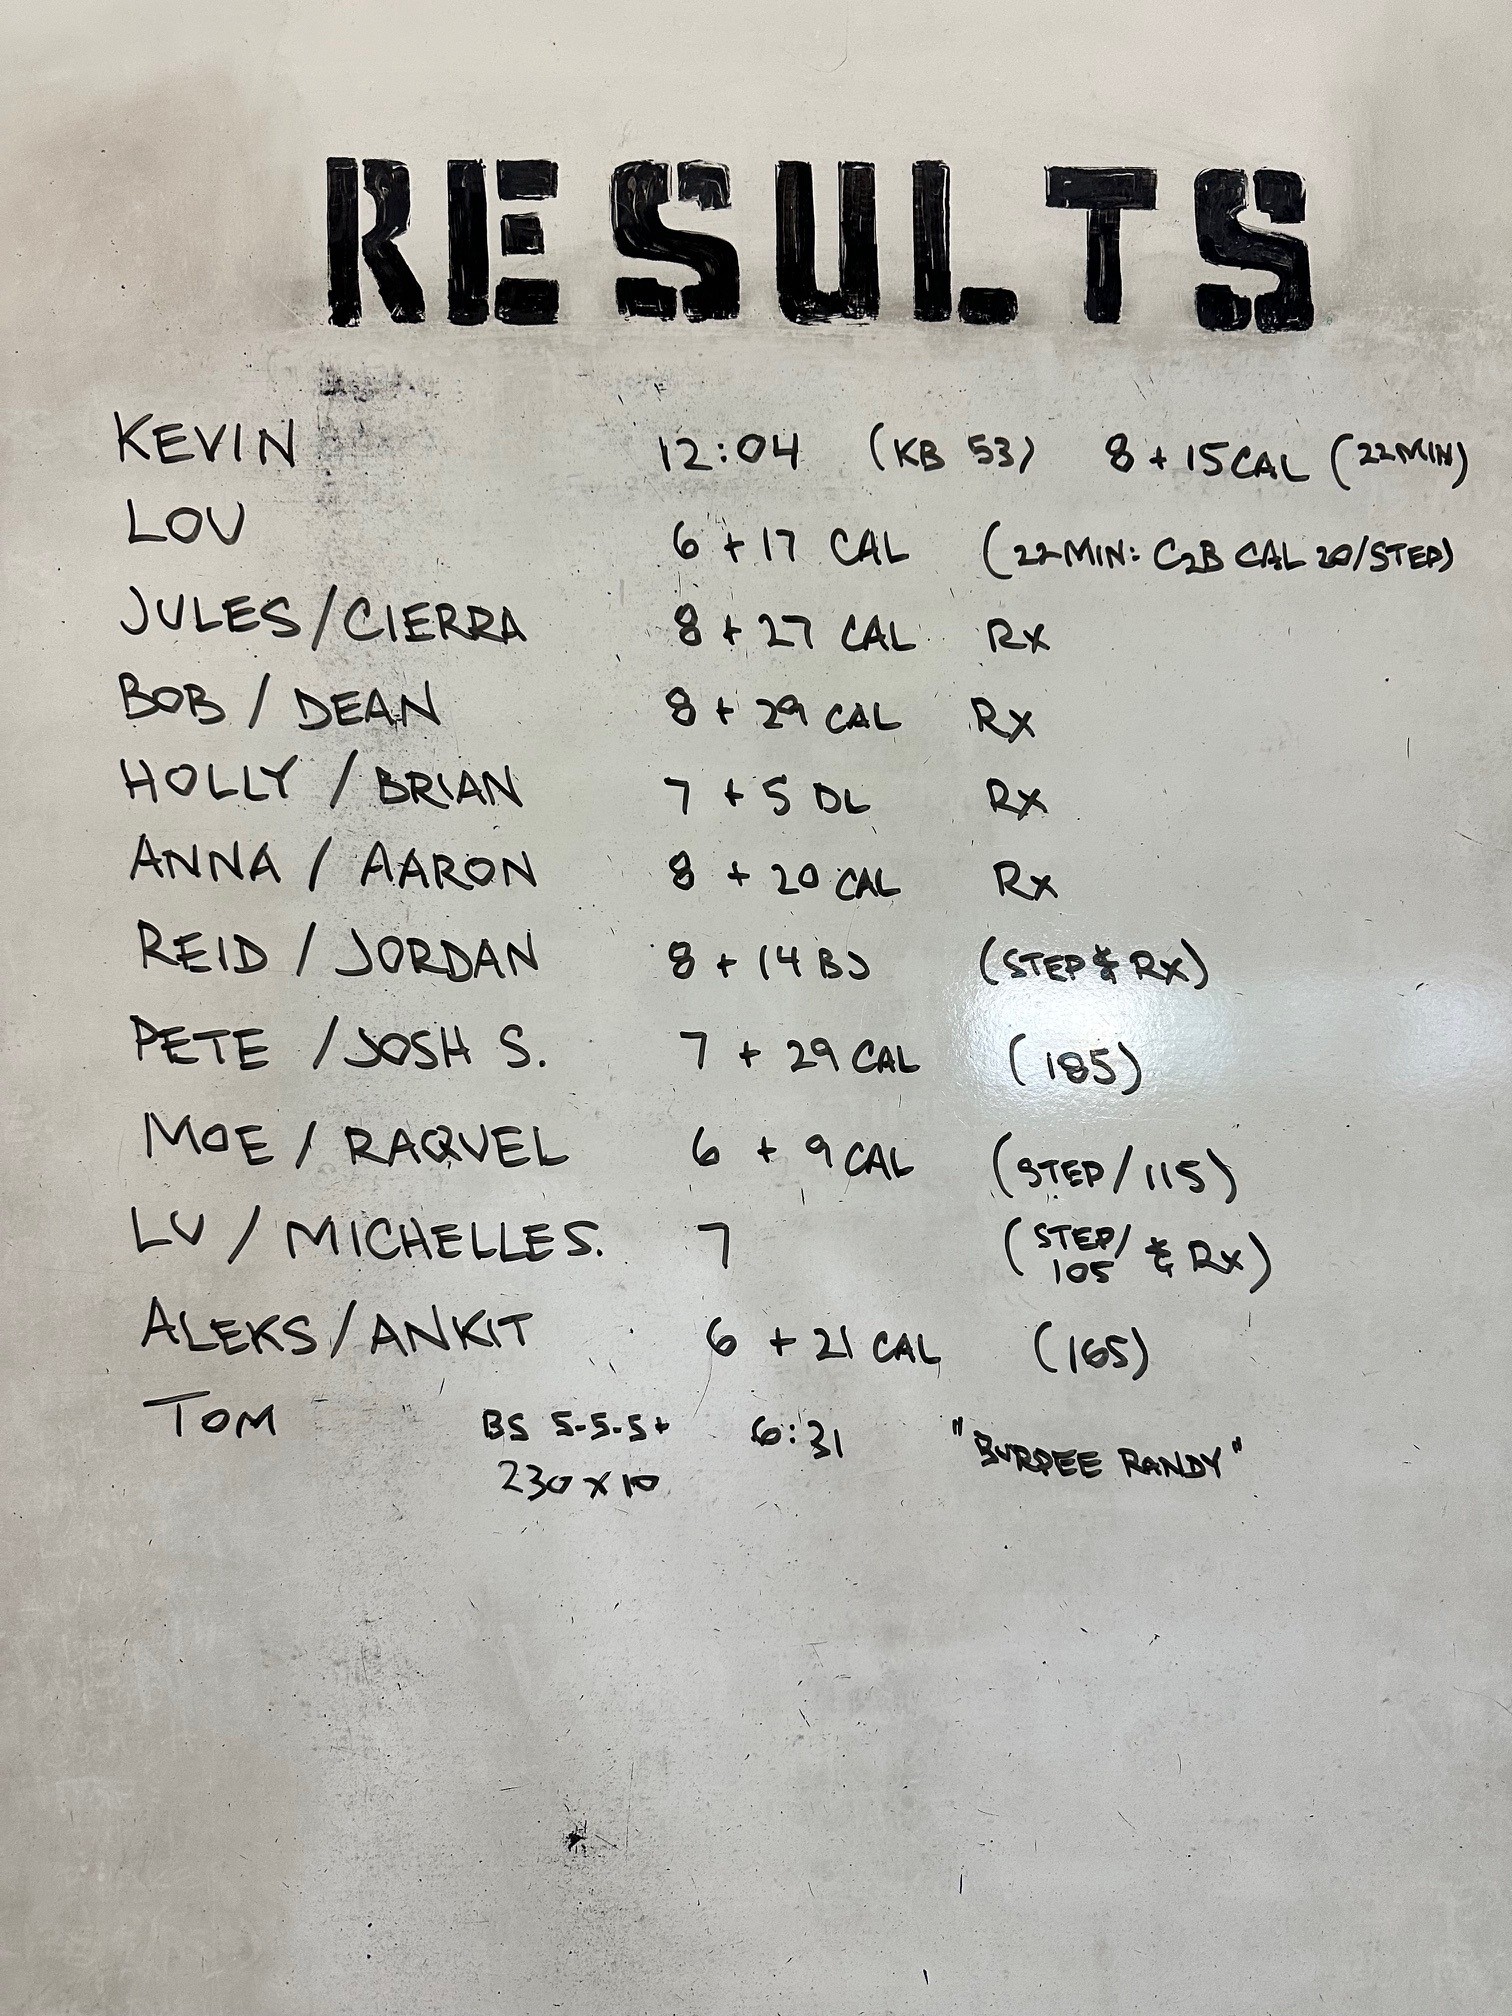 RESULTS
KEVIN 12:04 (KB 53) 8 + 15 CAL (22 MIN)
LOU 6 + 17 CAL (22 MIN: C2B CAL 20/STEP)
JULES / CIERRA 8 + 27 CAL Rx
BOB / DEAN 8 + 29 CAL Rx
HOLLY / BRIAN 7 + 5 DL Rx
ANNA / AARON 8 + 20 CAL Rx
REID / JORDAN 8 + 14 BJ (STEP & Rx)
PETE / JOSH S. 7 + 29 CAL (185)
MOE / RAQUEL 6 + 9 CAL (STEP / 115)
LU / MICHELLE S. 7 (STEP/ 105 & Rx)
ALEKS / ANKIT 6 + 21 CAL (165)
TOM BS 5-5-5+ 6:31 "BURPEE RANDY"
230 x 10